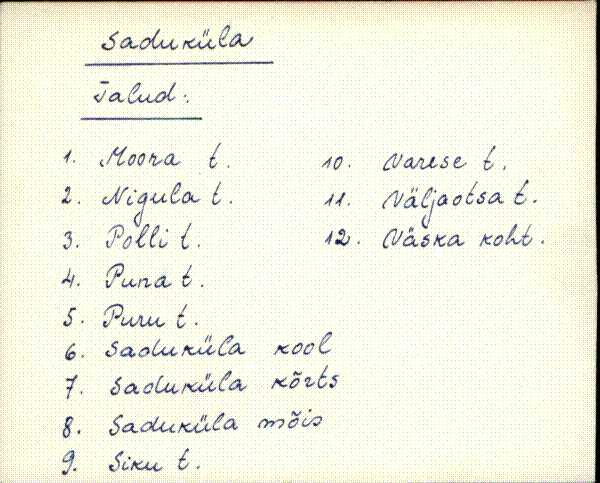 Saduküla
Talud:
1. Moora t.
2. Nigula t.
3. Polli t.
4. Puna t.
5. Puru t.
6. Saduküla kool
7. Saduküla kõrts
8. Saduküla mõis
9. Siku t.
10. Varese t.
11. Väljaotsa t.
12. Väska koht.